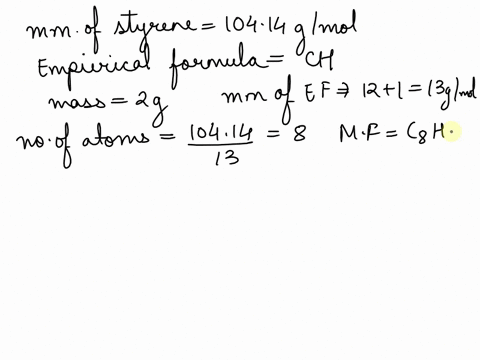 mm. of styrene = 104.14 g/mol
Empirical formula = CH
mass = 2g mm of EF ⇒ 12+1 = 13g/mol
no. of atoms = 104.14/13 = 8 M.F = C₈H.